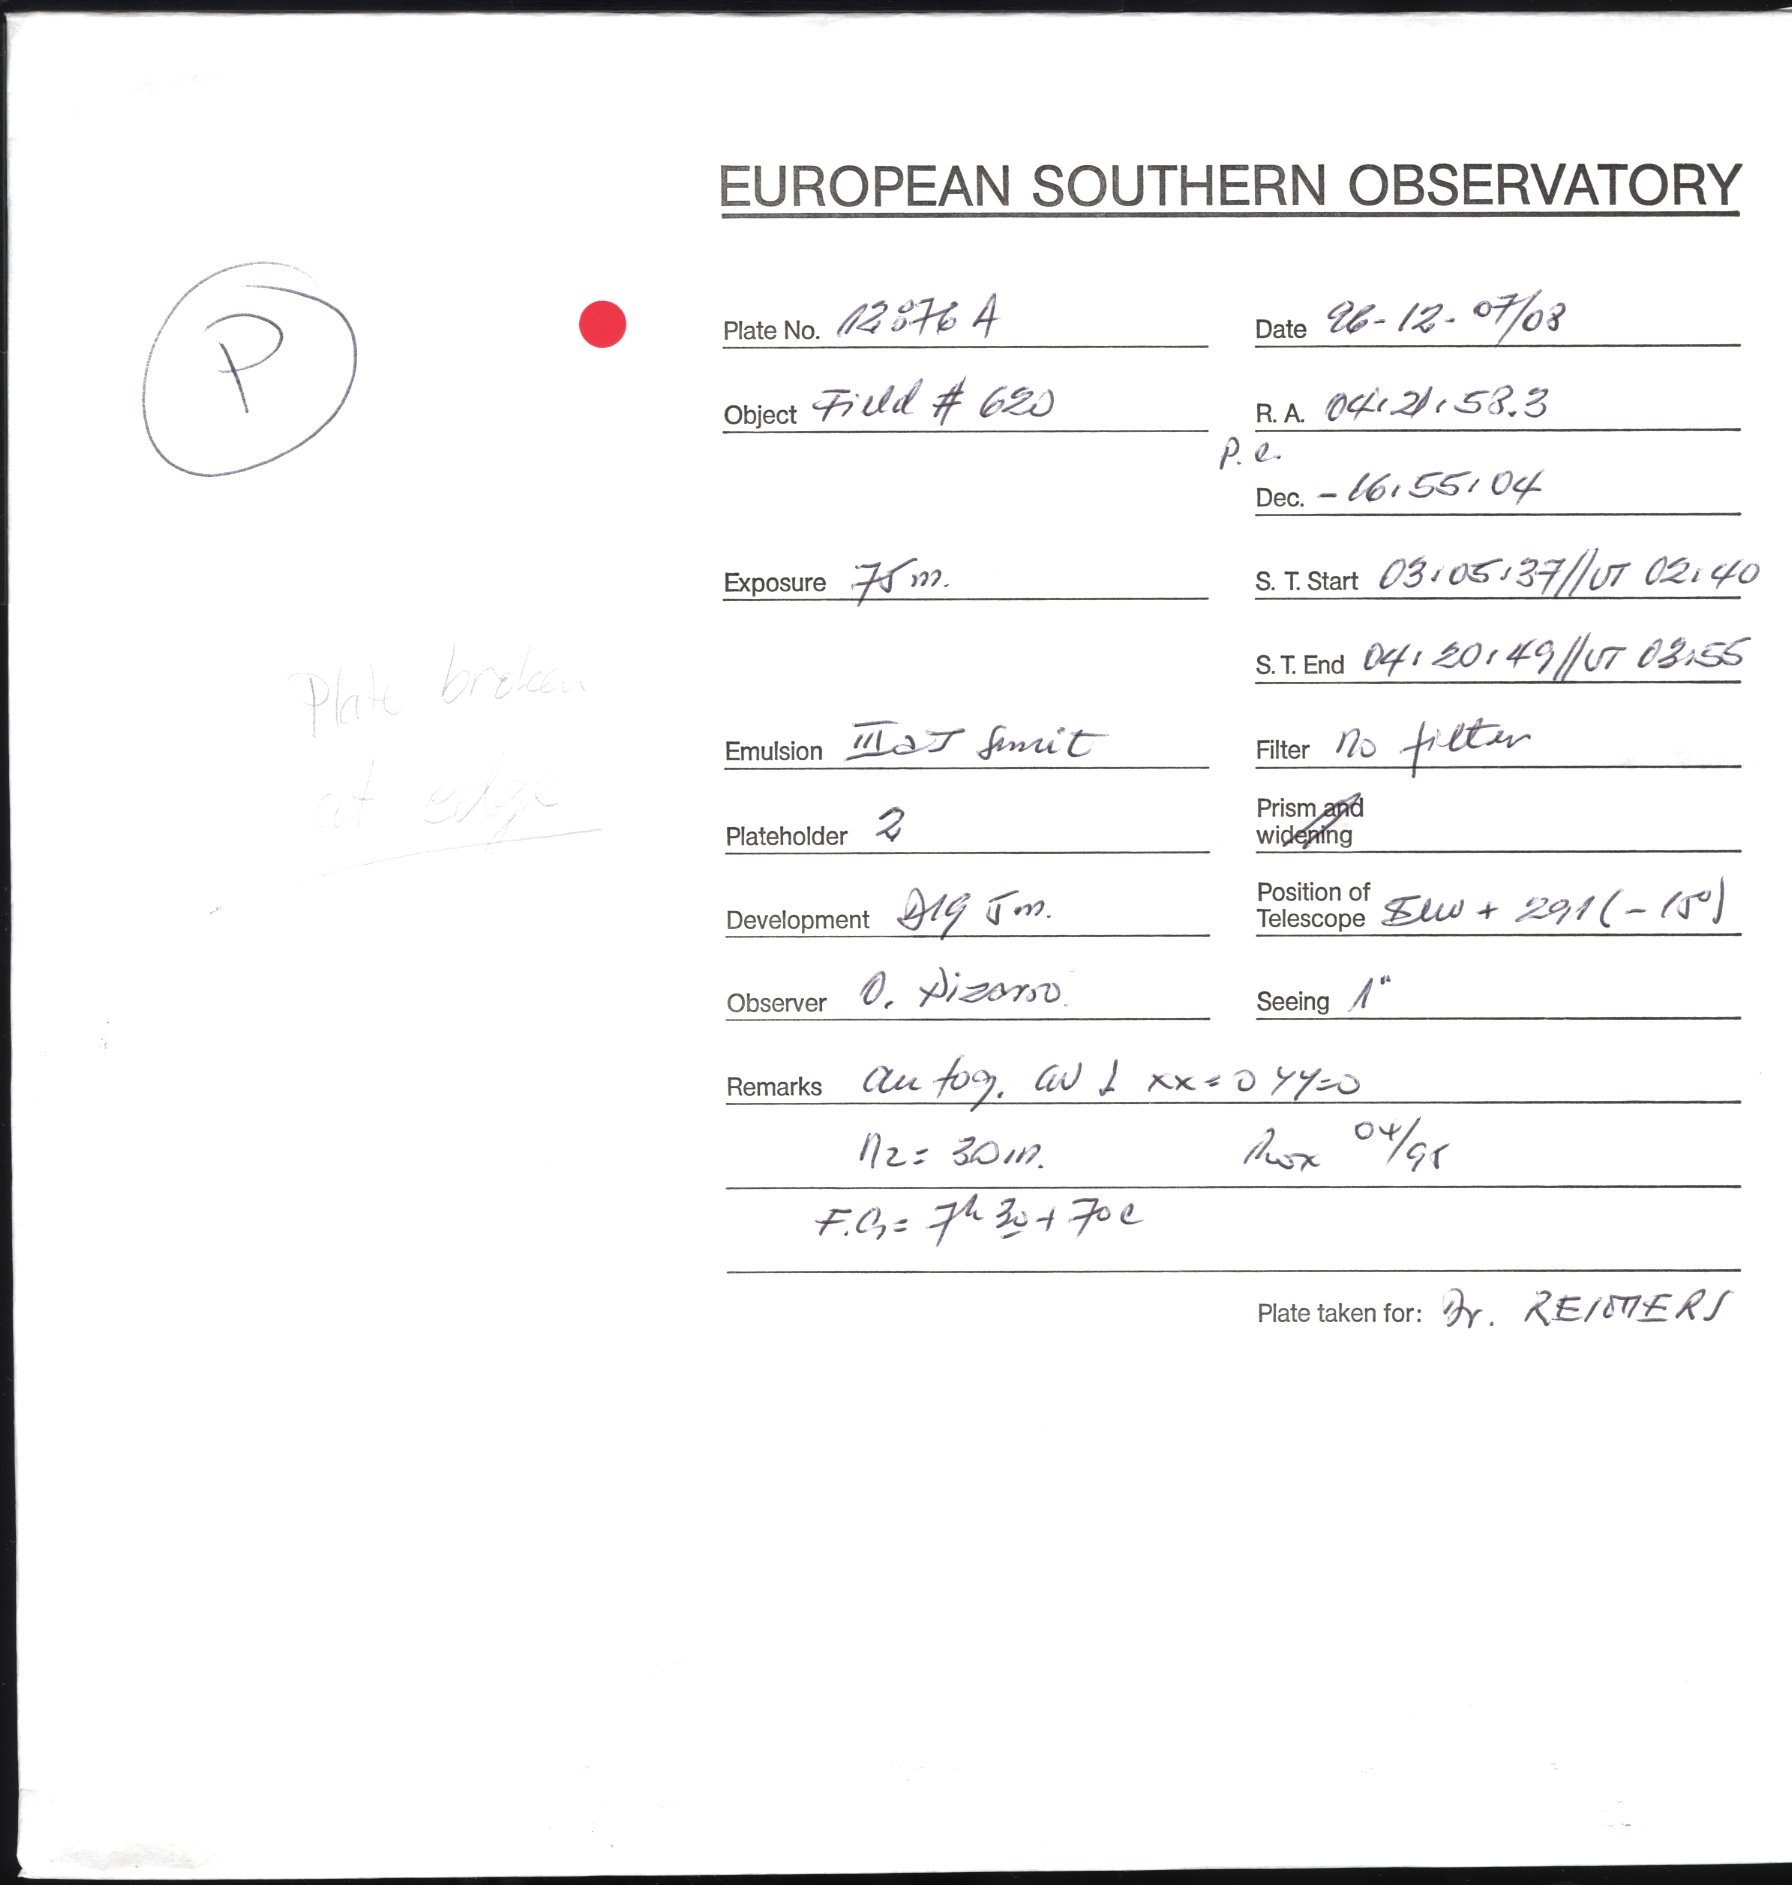 EUROPEAN SOUTHERN OBSERVATORY
P
Plate No. 12876 A
Date 96-12-07/08
Object Field # 620
R. A. 04:21:58.3
P. e.
Dec. -16:55:04
Exposure 75 m.
S. T. Start 03:05:37//UT 02:40
S. T. End 04:20:49//UT 03:55
Plate broken
at edge
Emulsion IIIaJ
Filter no filter
Plateholder 2
Prism and
widening
Position of
Telescope + 291 (-15°)
Development D19 5m.
Observer O. Pizarro.
Seeing 1"
Remarks xx=0 yy=0
N2= 30m. 04/95
F.G= 7h 30 + 70
Plate taken for: Dr. REIMERS